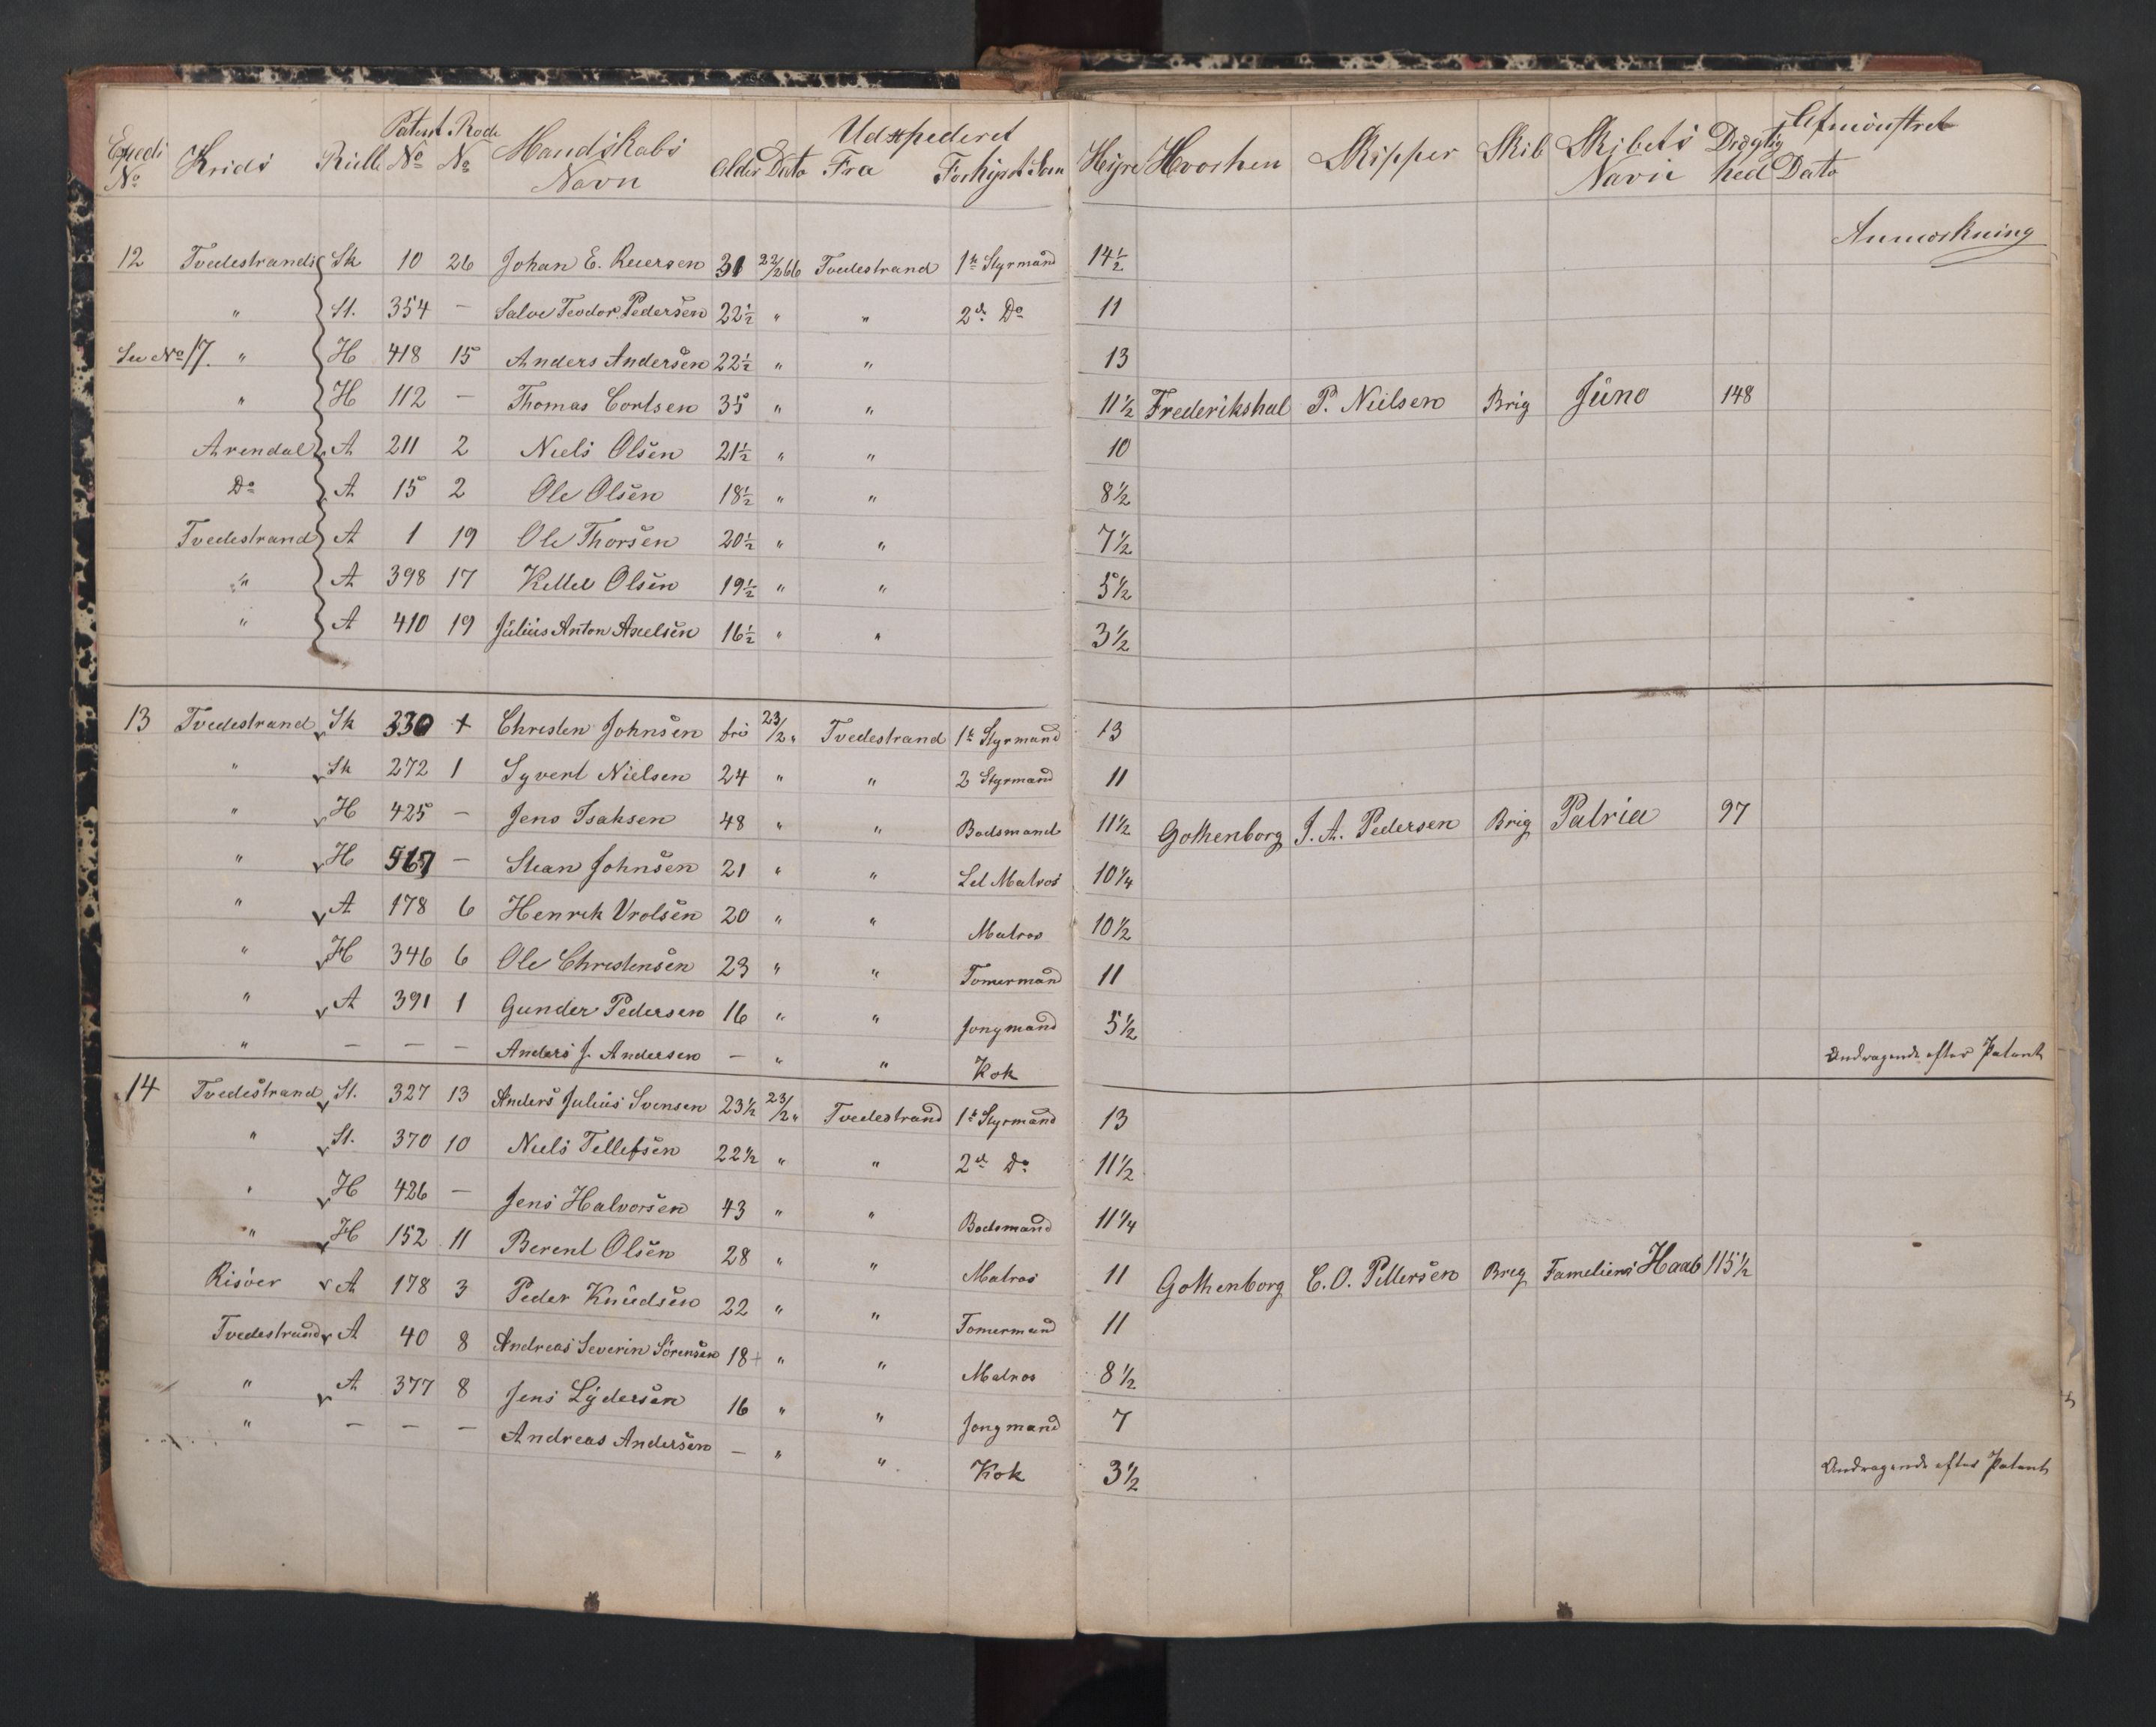 Expedi No Krids Rulle Patent No Rode No Mandskabs Navn Alder Dato Udexpederet Fra Forhyret Som Hyre Hvorhen Skipper Skib Skibets Navn Drægtighed Afmönstret Dato
Anmærkning
12 Tvedestrands Sk 10 26 Johan E. Reiersen 31 22/2 66 Tvedestrand 1ste Styrmand 14½
" St. 354 — Salve Teodor Pedersen 22½ " " 2den Do 11
Se No 17. " H 418 15 Anders Andersen 22½ " " 13
" H 112 — Thomas Cortsen 35 " " 11½ Frederikshal P. Nielsen Brig Juno 148
Arendal A 211 2 Niels Olsen 21½ " " 10
Do A 15 2 Ole Olsen 18½ " " 8½
Tvedestrand A 1 19 Ole Thorsen 20½ " " 7½
" A 398 17 Kettel Olsen 19½ " " 5½
" A 410 19 Julius Anton Axelsen 16½ " " 3½
13 Tvedestrand Sk 330 + Christen Johnsen fri 23/2 " Tvedestrand 1ste Styrmand 13
" Sk 272 1 Syvert Nielsen 24 " " 2 Styrmand 11
" H 425 — Jens Isaksen 48 " " Bodsmand 11½ Gothenborg J. A. Pedersen Brig Patria 97
" H 567 — Stean Johnsen 21 " " Let Matros 10¼
" A 178 6 Henrik Vrolsen 20 " " Matros 10½
" H 346 6 Ole Christensen 23 " " Tomermand 11
" A 391 1 Gunder Pedersen 16 " " Jongmand 5½
" — — — Anders J. Andersen — " " Kok Andragende efter Patent
14 Tvedestrand St. 327 13 Anders Julius Svensen 23½ 23/2 " Tvedestrand 1ste Styrmand 13
" St. 370 10 Niels Tellefsen 22½ " " 2den Do 11½
" H 426 — Jens Halvorsen 43 " " Bodsmand 11¼
" H 152 11 Berent Olsen 28 " " Matros 11 Gothenborg C. O. Pettersen Brig Familiens Haab 115½
Risöer A 178 3 Peder Knudsen 22 " " Tomermand 11
Tvedestrand A 40 8 Andreas Severin Sörensen 18+ " " Matros 8½
" A 377 8 Jens Lydersen 16 " " Jongmand 7
" — — — Andreas Andersen — " " Kok 3½ Andragende efter Patent